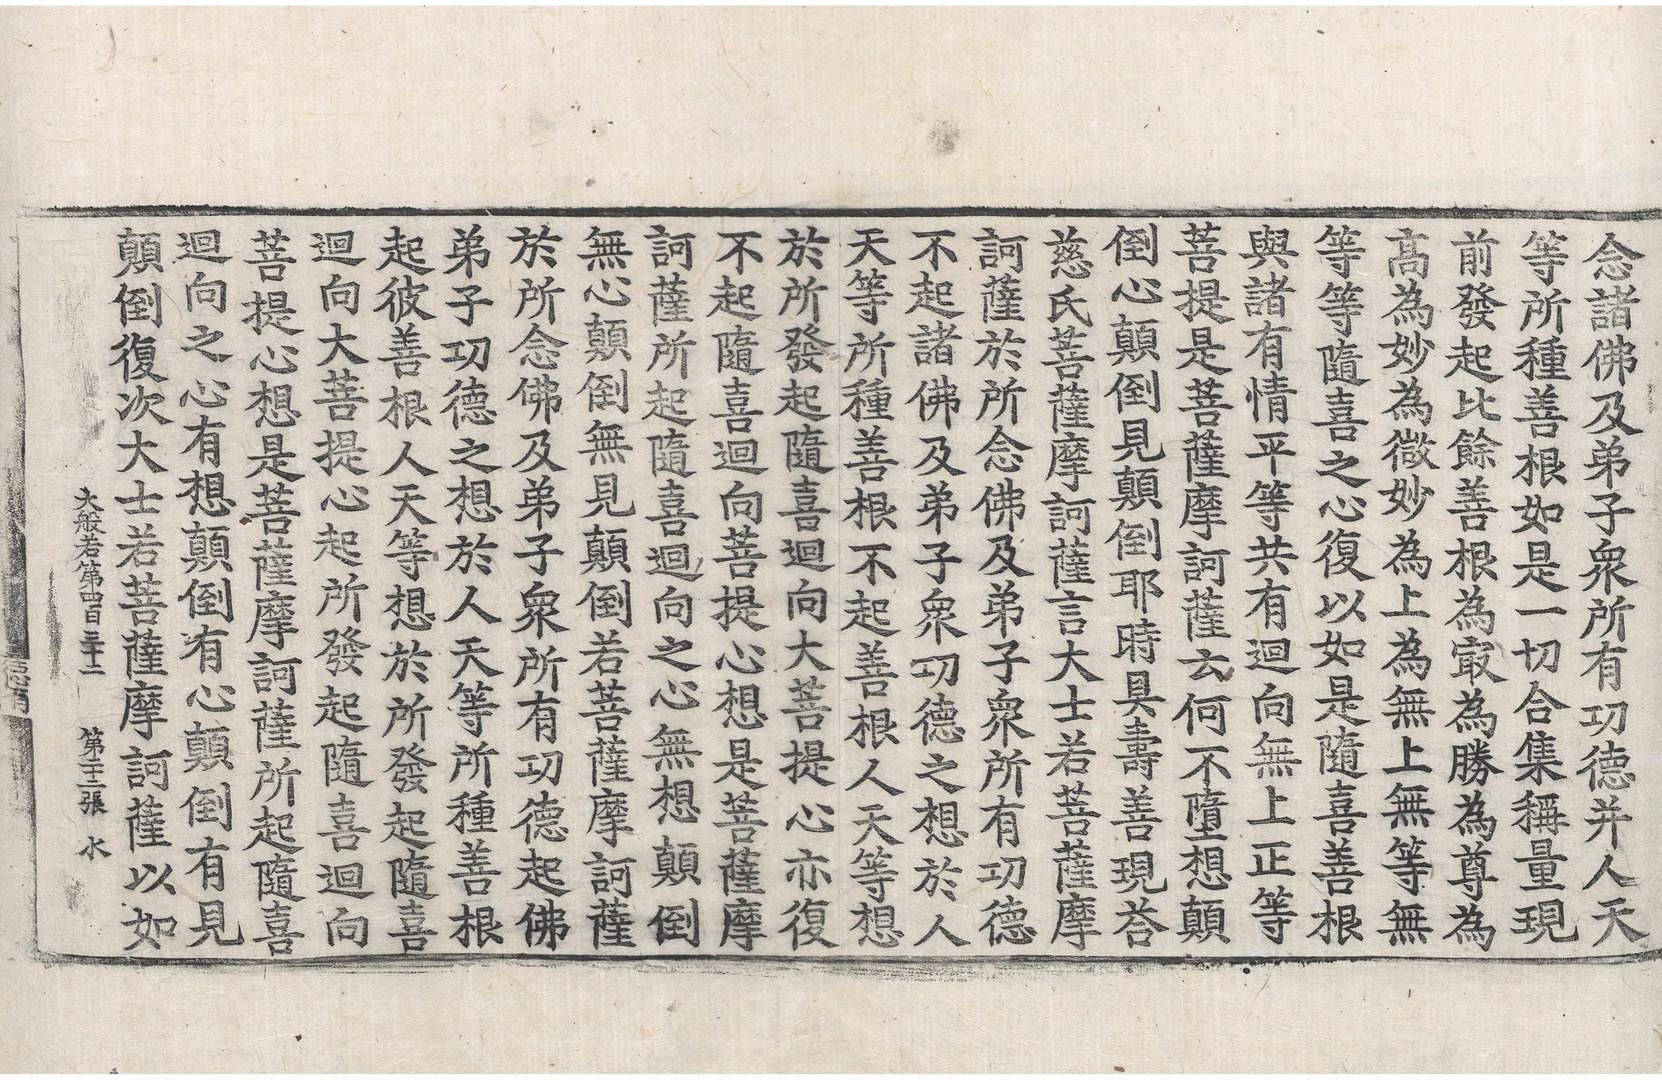 念諸佛及弟子衆所有功德并人天
等所種善根如是一切合集稱量現
前發起比餘善根為㝡為勝為尊為
高為妙為微妙為上為無上無等無
等等隨喜之心復以如是隨喜善根
與諸有情平等共有迴向無上正等
菩提是菩薩摩訶薩云何不墮想顛
倒心顛倒見顛倒耶時具壽善現荅
慈氏菩薩摩訶薩言大士若菩薩摩
訶薩於所念佛及弟子衆所有功德
不起諸佛及弟子衆功德之想於人
天等所種善根不起善根人天等想
於所發起隨喜迴向大菩提心亦復
不起隨喜迴向菩提心想是菩薩摩
訶薩所起隨喜迴向之心無想顛倒
無心顛倒無見顛倒若菩薩摩訶薩
於所念佛及弟子衆所有功德起佛
弟子功德之想於人天等所種善根
起彼善根人天等想於所發起隨喜
迴向大菩提心起所發起隨喜迴向
菩提心想是菩薩摩訶薩所起隨喜
迴向之心有想顛倒有心顛倒有見
顛倒復次大士若菩薩摩訶薩以如
大般若第四百三十二 第二十二張 水